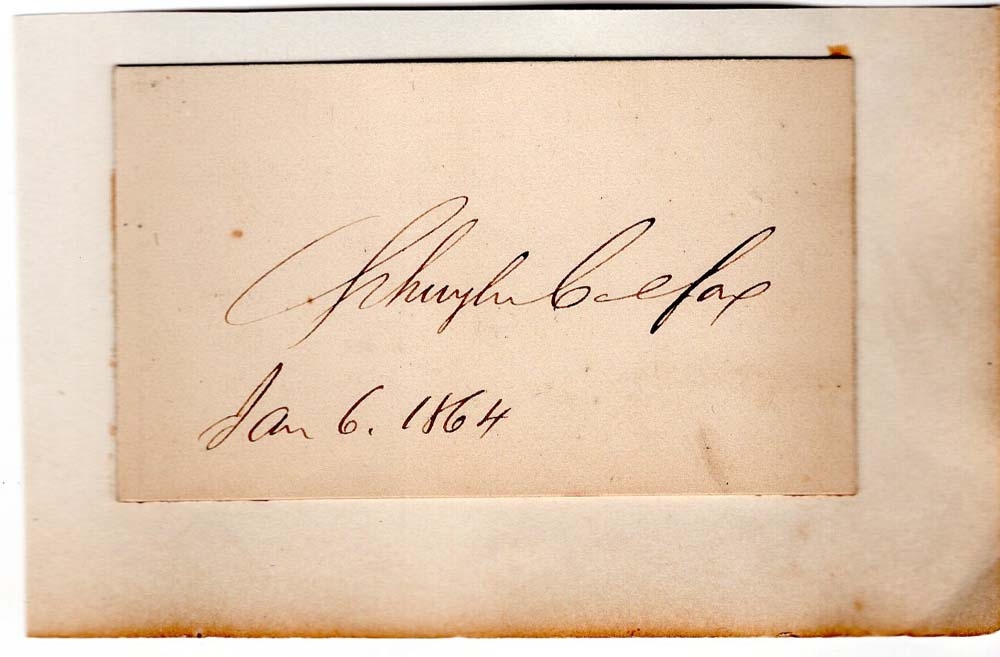 Schuyler Colfax
Jan 6. 1864